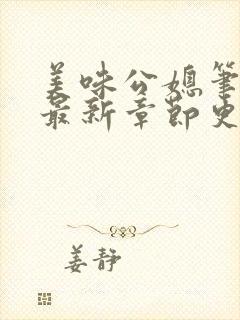 美味公媳筆
最新章節史
姜静